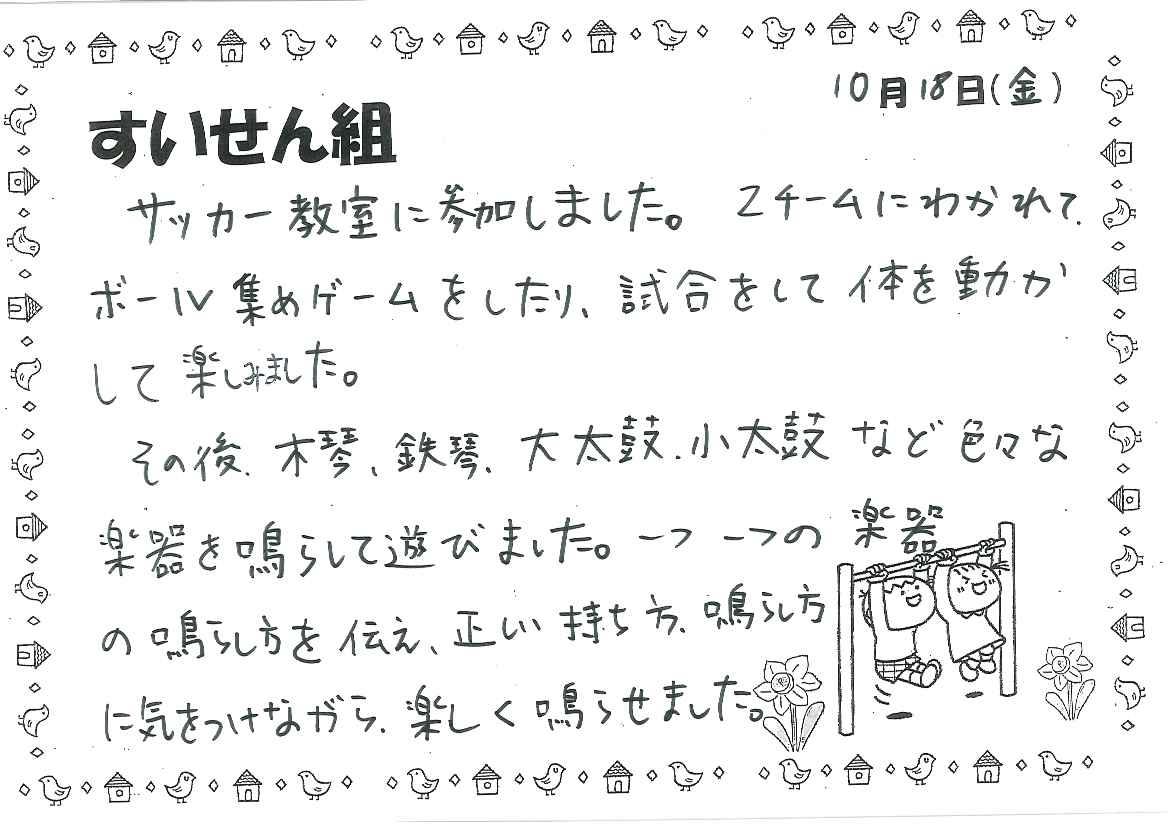 10月18日(金)
すいせん組
サッカー教室に参加しました。2チームにわかれて、
ボール集めゲームをしたり、試合をして体を動か
して楽しみました。
その後、木琴、鉄琴、大太鼓、小太鼓など色々な
楽器を鳴らして遊びました。一つ一つの楽器
の鳴らし方を伝え、正しい持ち方、鳴らし方
に気をつけながら、楽しく鳴らせました。